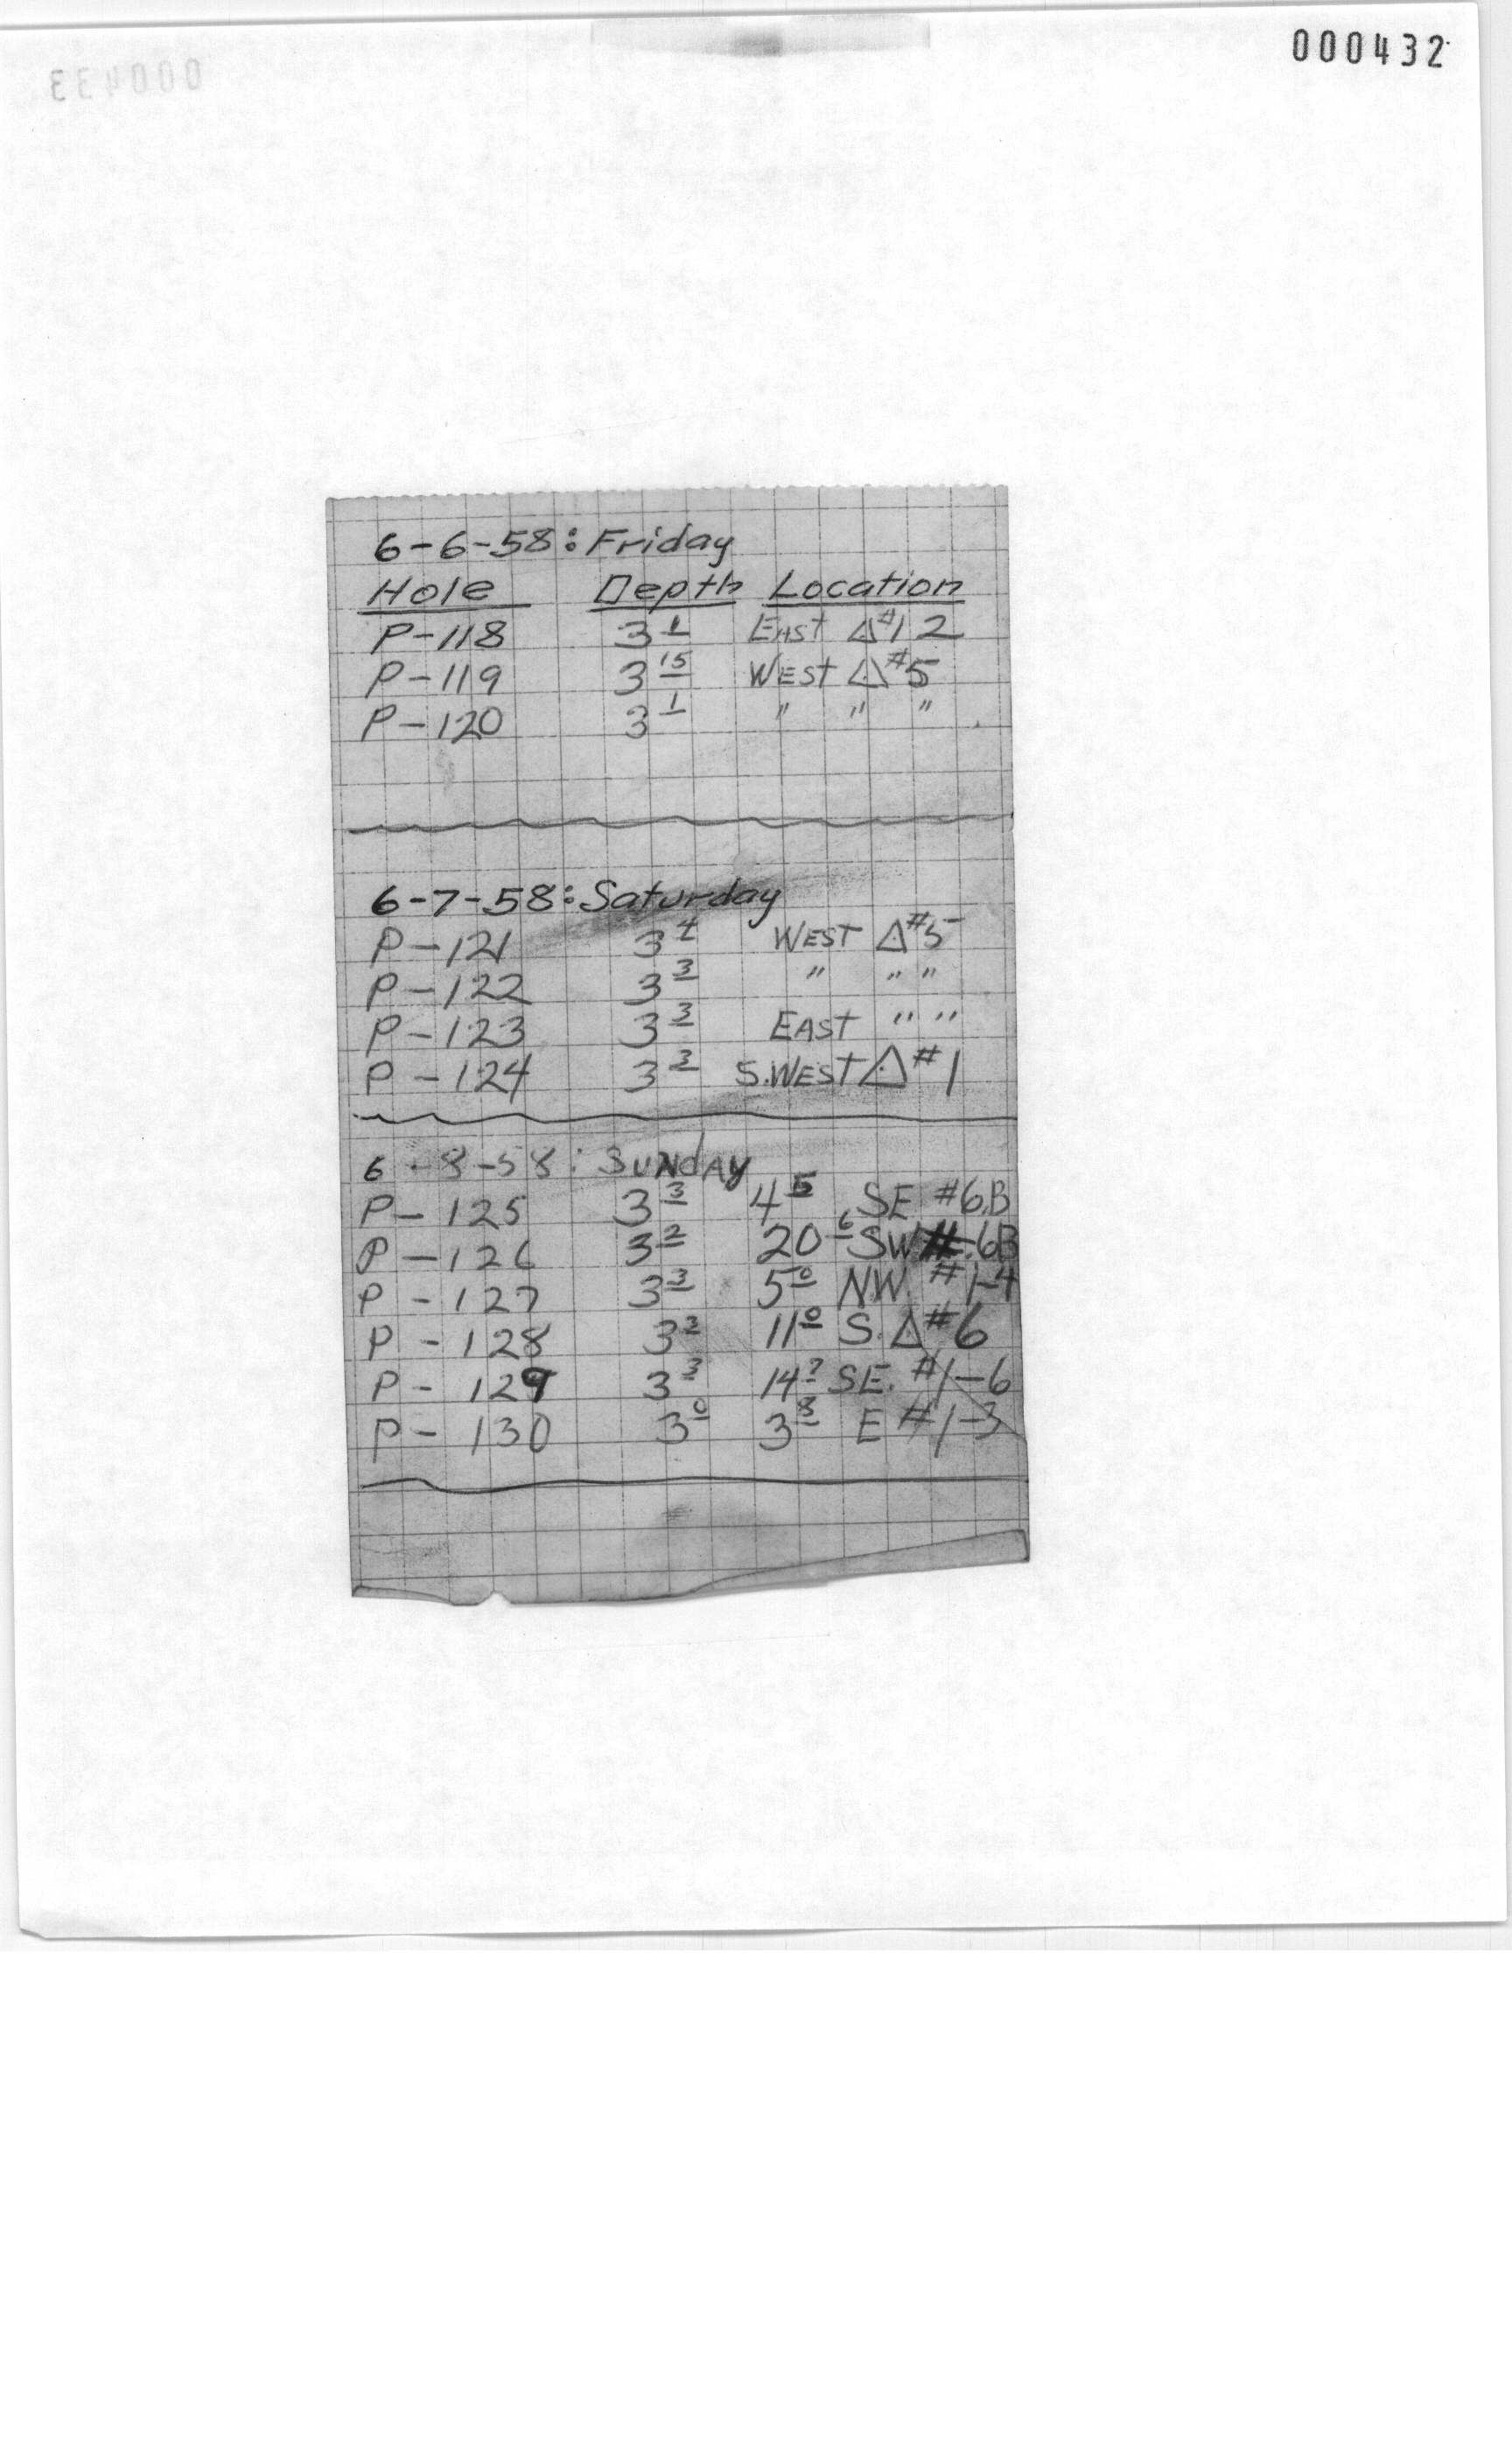 000432
6-6-58: Friday
Hole Depth Location
P-118 3 1 EAST Δ #12
P-119 3 15 WEST Δ #5
P-120 3 1 " " "
6-7-58: Saturday
P-121 3 4 WEST Δ #5
P-122 3 3 " " "
P-123 3 3 EAST " "
P-124 3 3 S.WEST Δ #1
6-8-58: SUNDAY
P-125 3 3 4 5 SE #6B
P-126 3 2 20 6 SW #6B
P-127 3 3 5 0 N.W. #1-4
P-128 3 3 11 0 S. Δ #6
P-129 3 3 14 SE. #1-6
P-130 3 0 3 8 E #1-3